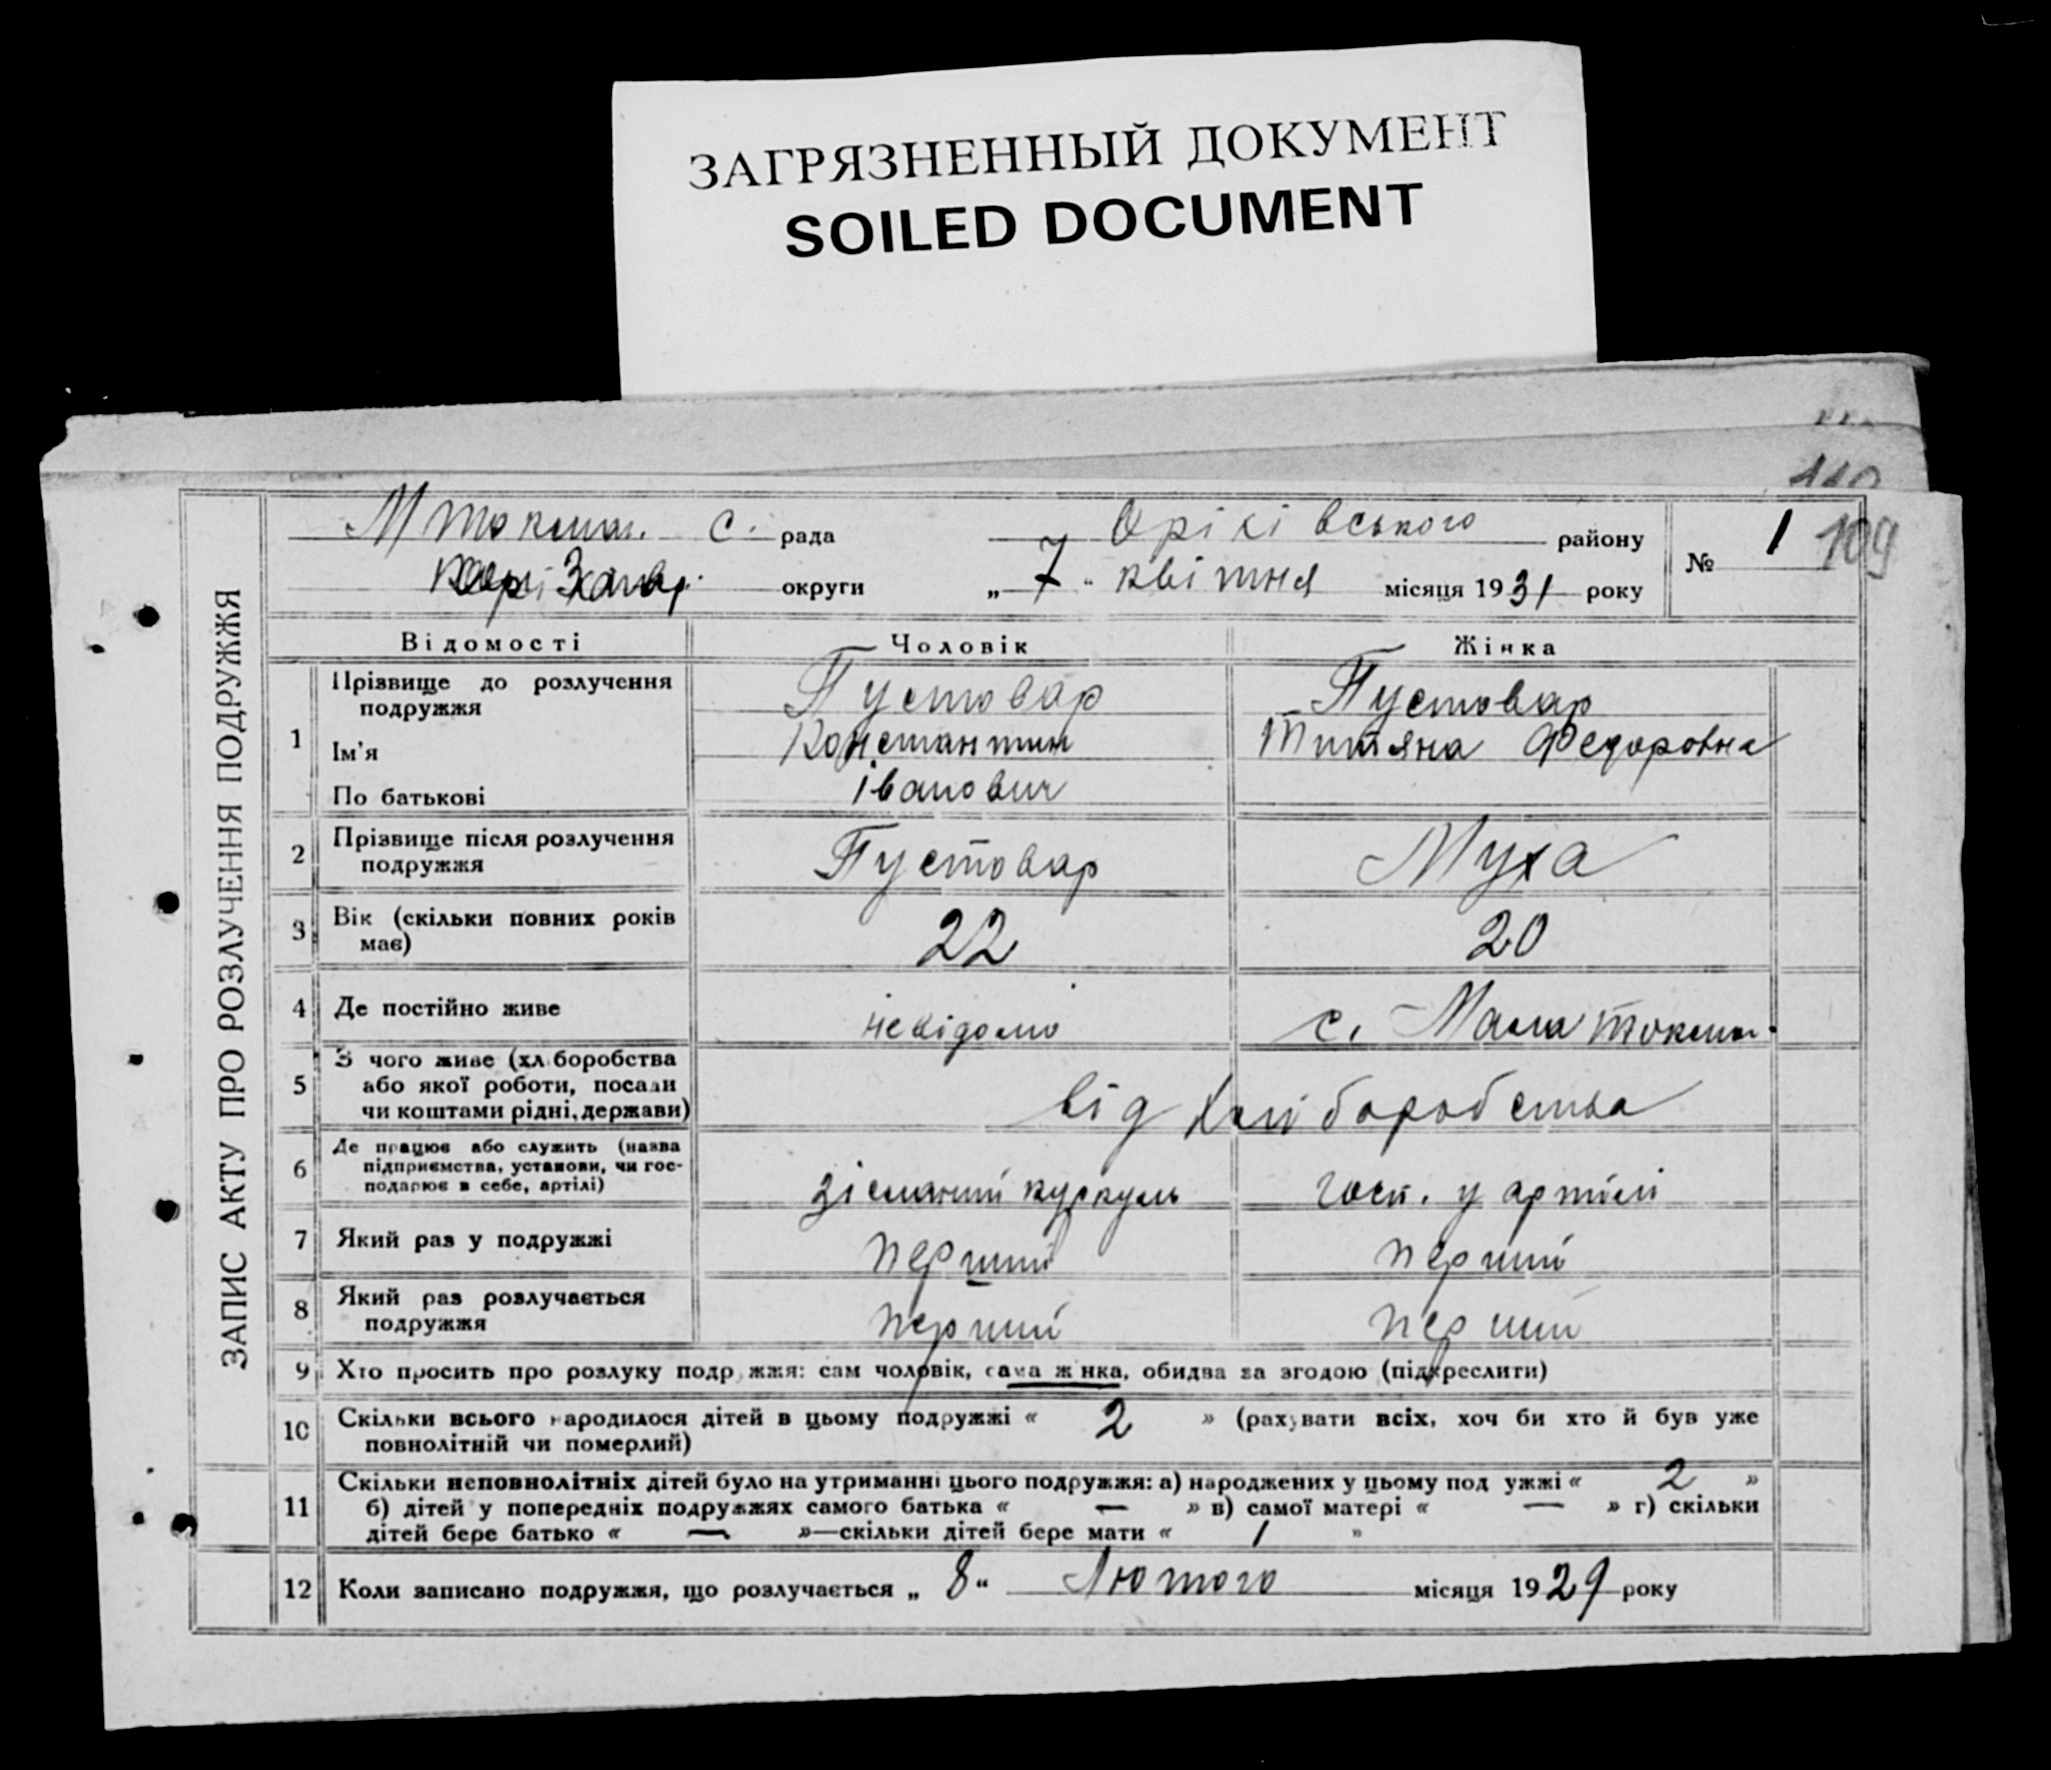 ЗАГРЯЗНЕННЫЙ ДОКУМЕНТ
SOILED DOCUMENT
110
109
ЗАПИС АКТУ ПРО РОЗЛУЧЕННЯ ПОДРУЖЖЯ
М Токмач. с. рада Оріхівського району № 1
округи „ 7 " квітня місяця 1931 року
Відомості Чоловік Жінка
1 Прізвище до розлучення подружжя Пустовар Пустовар
Ім'я Константин Титяна Федоровна
По батькові Іванович
2 Прізвище після розлучення подружжя Пустовар Муха
3 Вік (скільки повних років має) 22 20
4 Де постійно живе невідомо с. Мала Токмач.
5 З чого живе (хліборобства або якої роботи, посади чи коштами рідні, держави) від хліборобства
6 Де працює або служить (назва підприємства, установи, чи господарює в себе, артілі) зісланий куркуль госп. у артілі
7 Який раз у подружжі перший перший
8 Який раз розлучається подружжя перший перший
9 Хто просить про розлуку подружжя: сам чоловік, сама жінка, обидва за згодою (підкреслити)
10 Скільки всього народилося дітей в цьому подружжі « 2 » (рахувати всіх, хоч би хто й був уже
повнолітній чи померлий)
11 Скільки неповнолітніх дітей було на утриманні цього подружжя: а) народжених у цьому подружжі « 2 »
б) дітей у попередніх подружжях самого батька « — » в) самої матері « — » г) скільки
дітей бере батько « — »—скільки дітей бере мати « 1 »
12 Коли записано подружжя, що розлучається „ 8 " Лютого місяця 1929 року